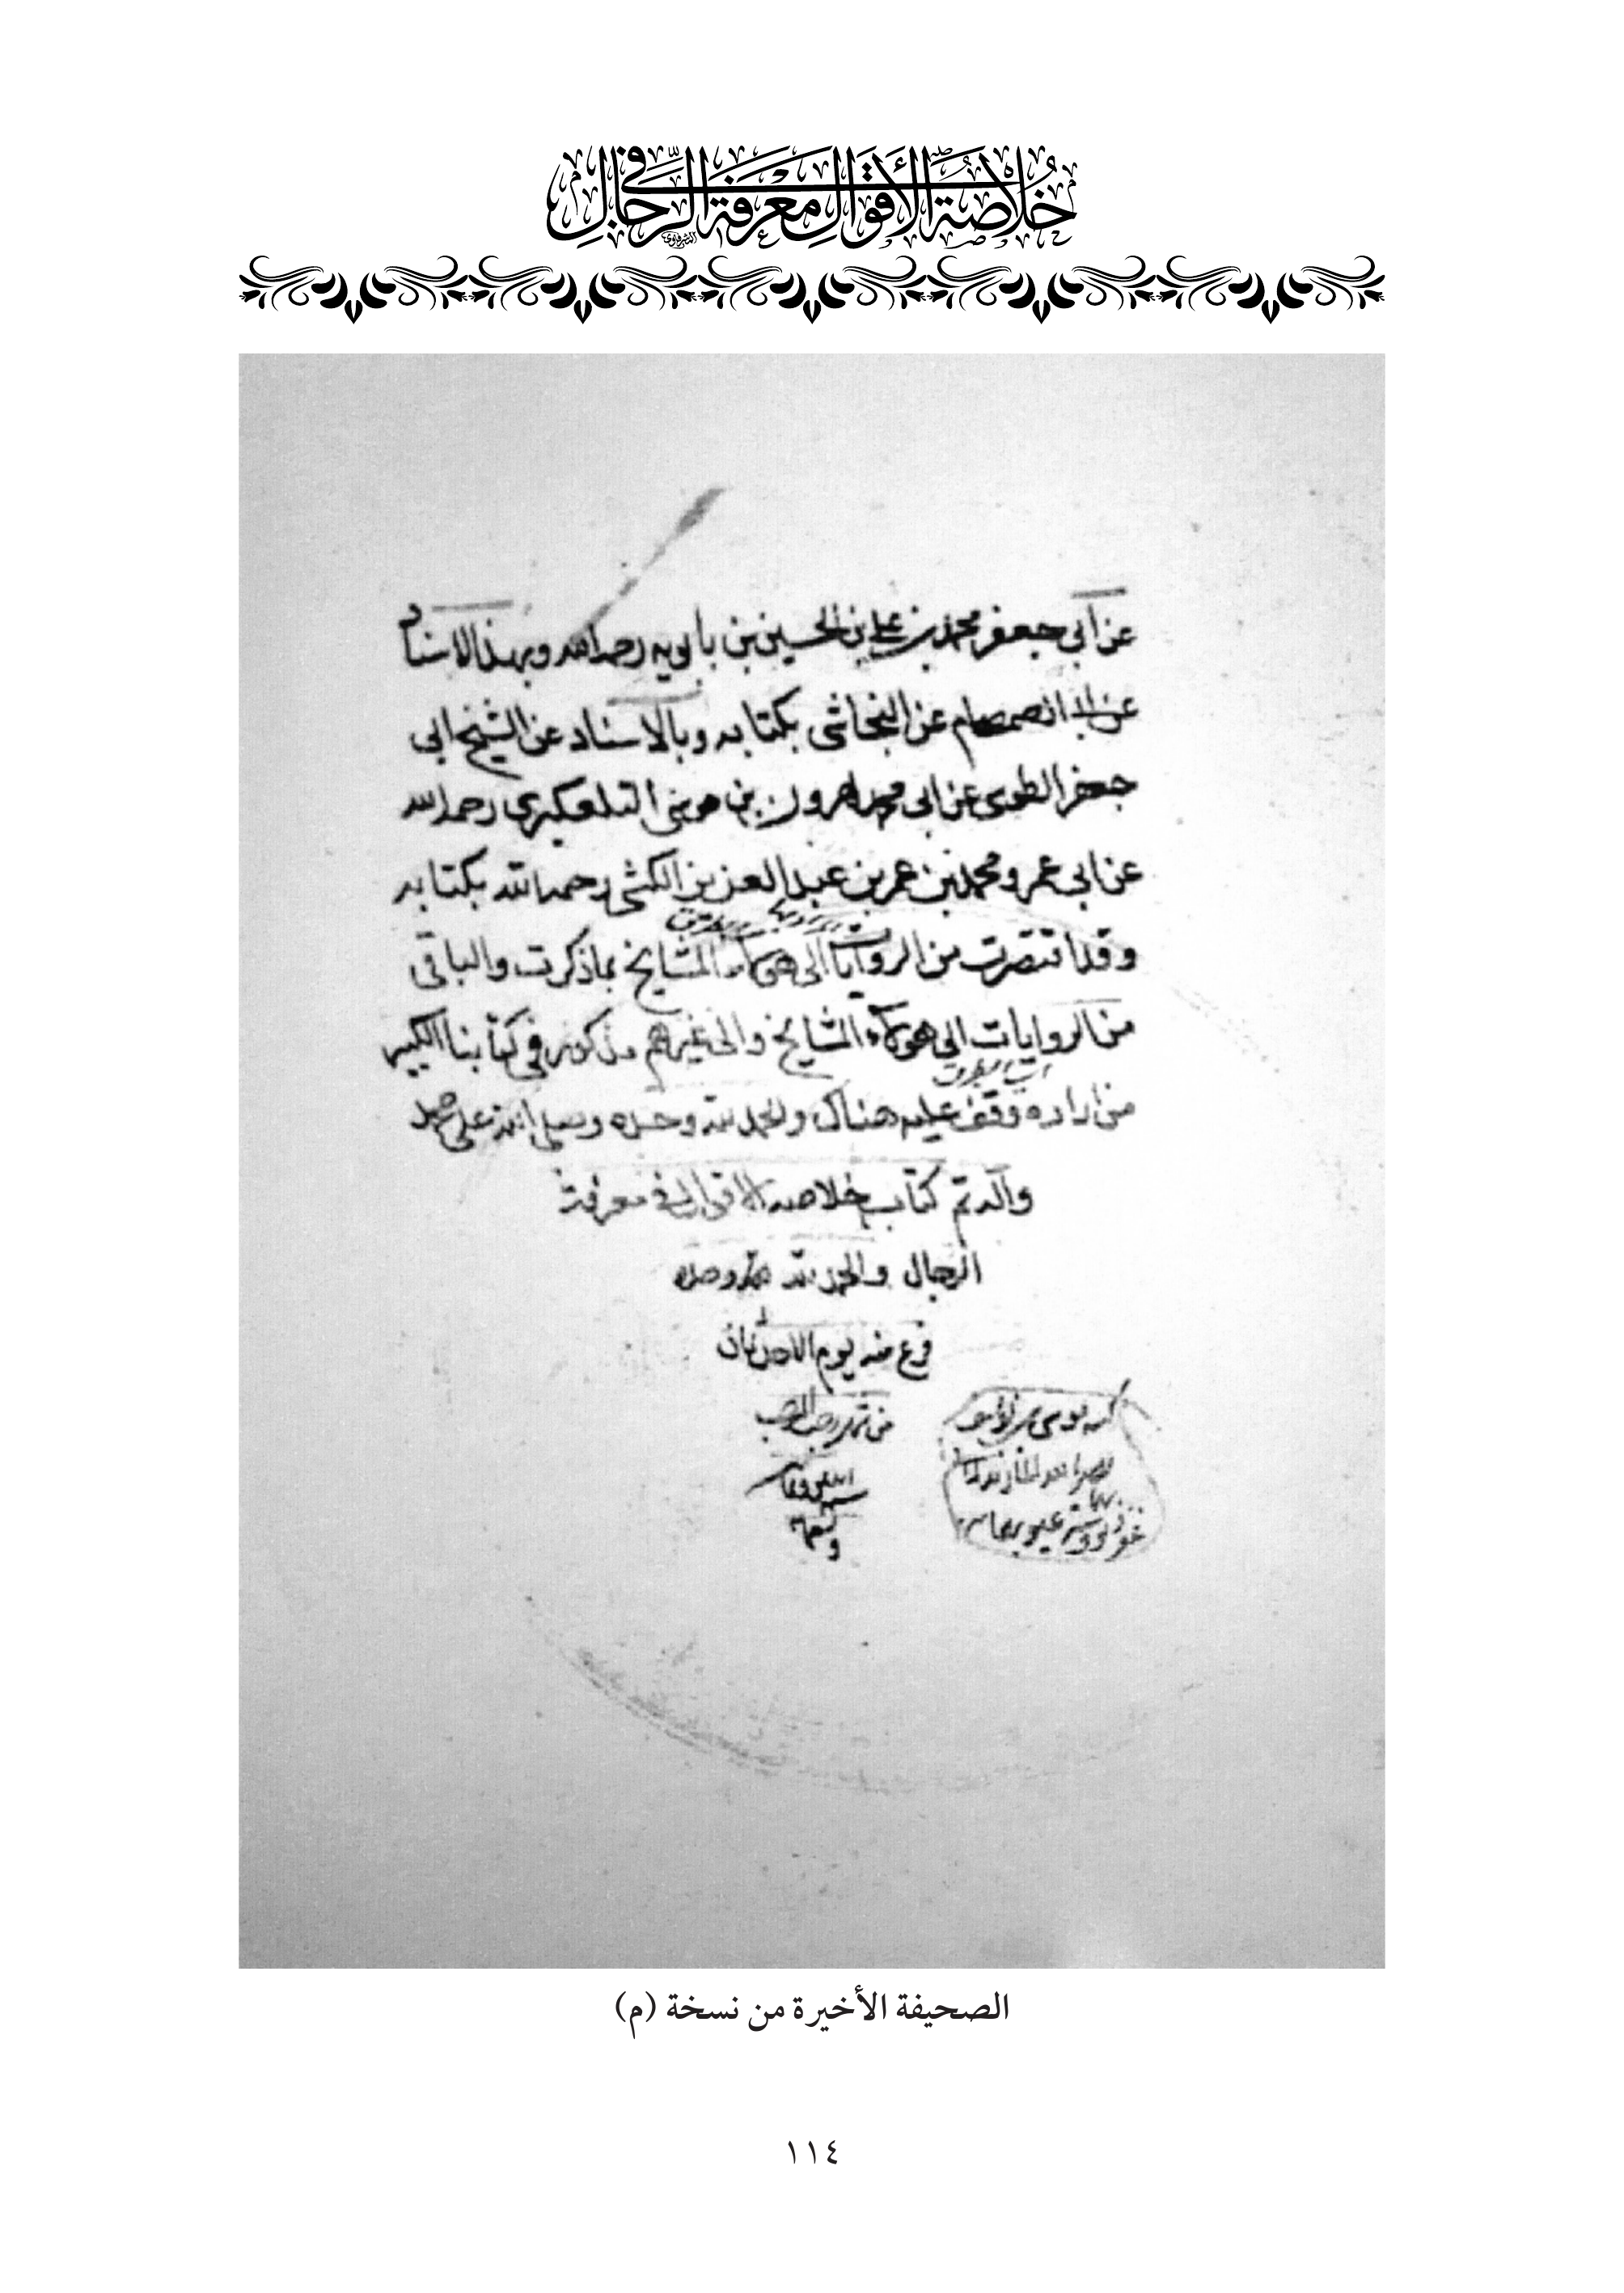 خُلاصَةُ الأَقْوَالِ فِي مَعْرِفَةِ الرِّجَالِ
عن ابي جعفر محمد بن علي بن الحسين بن بابويه رحمه الله وبهذا الاسناد
عن الصمصام عن النجاشي بكتابه وبالاسناد عن الشيخ ابي
جعفر الطوسي عن ابي محمد هرون بن موسى التلعكبري رحمه الله
عن ابي عمرو محمد بن عمر بن عبد العزيز الكشي رحمه الله بكتابه
وقد اقتصرت من الروايات الى هولاء المشايخ بماذكرت والباقي
من الروايات الى هولاء المشايخ والى غيرهم مذكور في كتابنا الكبير
من اراده وقف عليه هناك والحمد لله وحده وصلى الله على محمد
واله تم كتاب خلاصة الاقوال في معرفة
الرجال والحمد لله وحده
فرغ منه يوم الاحد
من شهر رجب المرجب
الصحيفة الأخيرة من نسخة (م)
١١٤